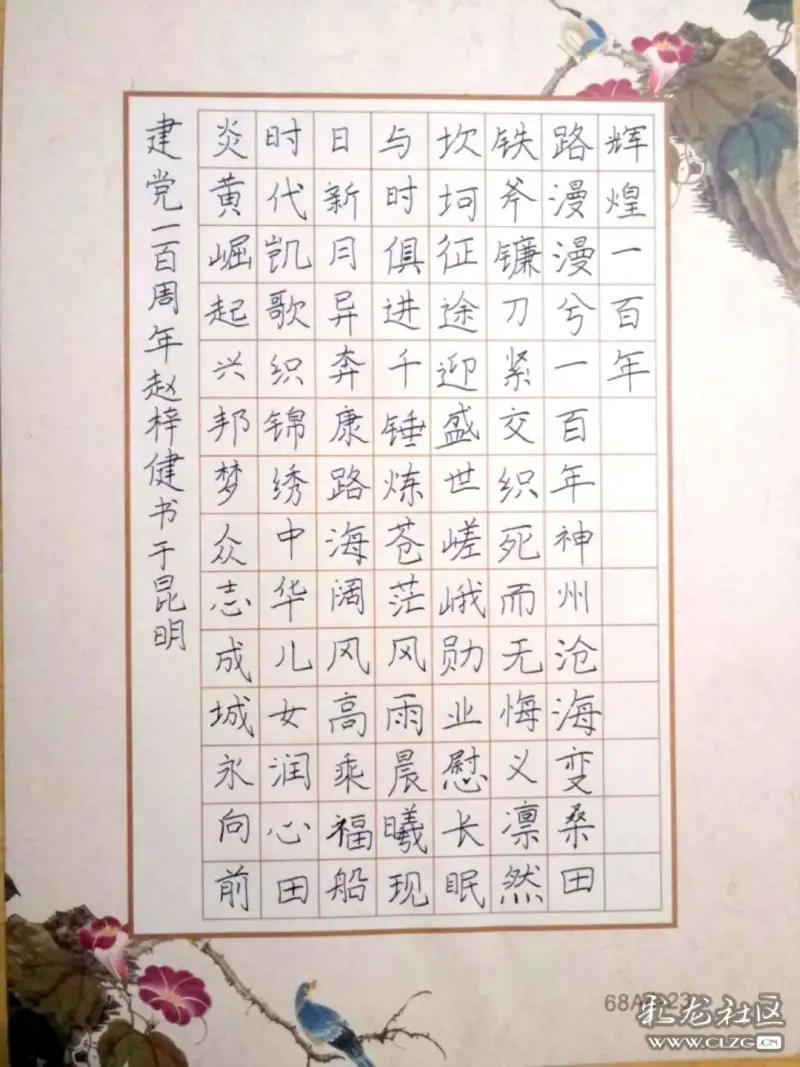 辉煌一百年
路漫漫兮一百年神州沧海变桑田
铁斧镰刀紧交织死而无悔义凛然
坎坷征途迎盛世嵯峨勋业慰长眠
与时俱进千锤炼苍茫风雨晨曦现
日新月异奔康路海阔风高乘福船
时代凯歌织锦绣中华儿女润心田
炎黄崛起兴邦梦众志成城永向前
建党一百周年赵梓健书于昆明
彩龙社区
WWW.CLZG.CN